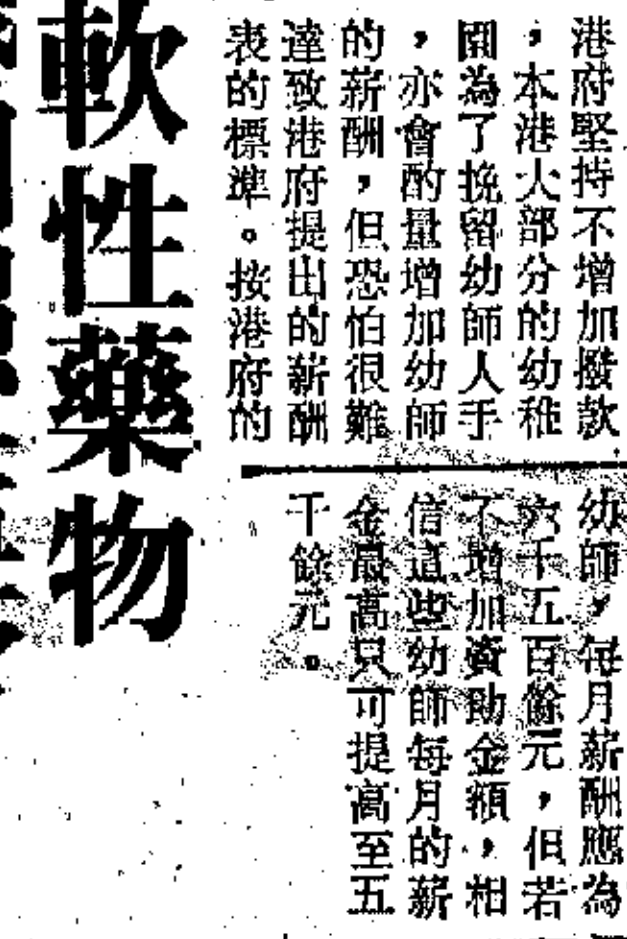 港府堅持不增加撥款
，本港大部分的幼稚
園為了挽留幼師人手
，亦會酌量增加幼師
的薪酬，但恐怕很難
達致港府提出的薪酬
表的標準。按港府的
幼師，每月薪酬應為
六千五百餘元，但若
不增加資助金額，相
信這些幼師每月的薪
金最高只可提高至五
千餘元。
軟性藥物